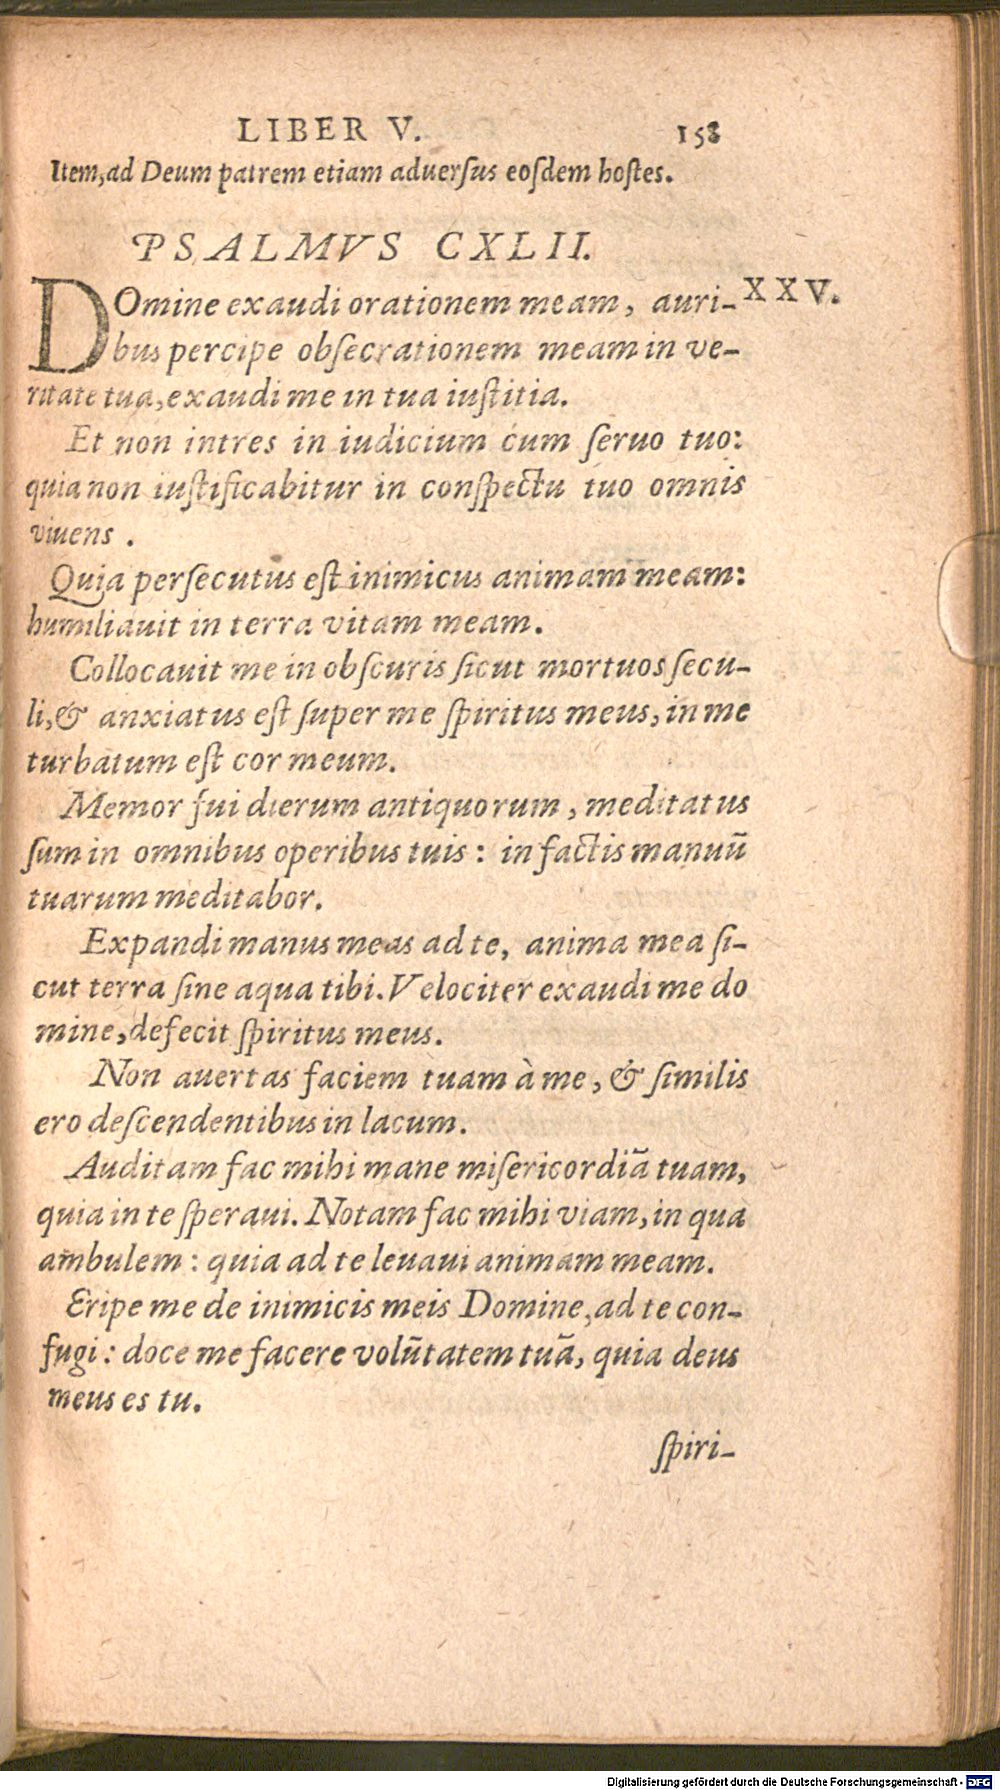 LIBER V. 158
Item, ad Deum patrem etiam aduersus eosdem hostes.
PSALMVS CXLII.
DOmine exaudi orationem meam, auri- XXV.
bus percipe obsecrationem meam in ve-
ritate tua, exaudi me in tua iustitia.
Et non intres in iudicium cum seruo tuo:
quia non iustificabitur in conspectu tuo omnis
viuens .
Quia persecutus est inimicus animam meam:
humiliauit in terra vitam meam.
Collocauit me in obscuris sicut mortuos secu-
li, & anxiatus est super me spiritus meus, in me
turbatum est cor meum.
Memor fui dierum antiquorum, meditatus
sum in omnibus operibus tuis: in factis manuū
tuarum meditabor.
Expandi manus meas ad te, anima mea si-
cut terra sine aqua tibi. Velociter exaudi me do
mine, defecit spiritus meus.
Non auertas faciem tuam à me, & similis
ero descendentibus in lacum.
Auditam fac mihi mane misericordiā tuam,
quia in te speraui. Notam fac mihi viam, in qua
ambulem: quia ad te leuaui animam meam.
Eripe me de inimicis meis Domine, ad te con-
fugi: doce me facere volūtatem tuā, quia deus
meus es tu.
spiri-
Digitalisierung gefördert durch die Deutsche Forschungsgemeinschaft - DFG